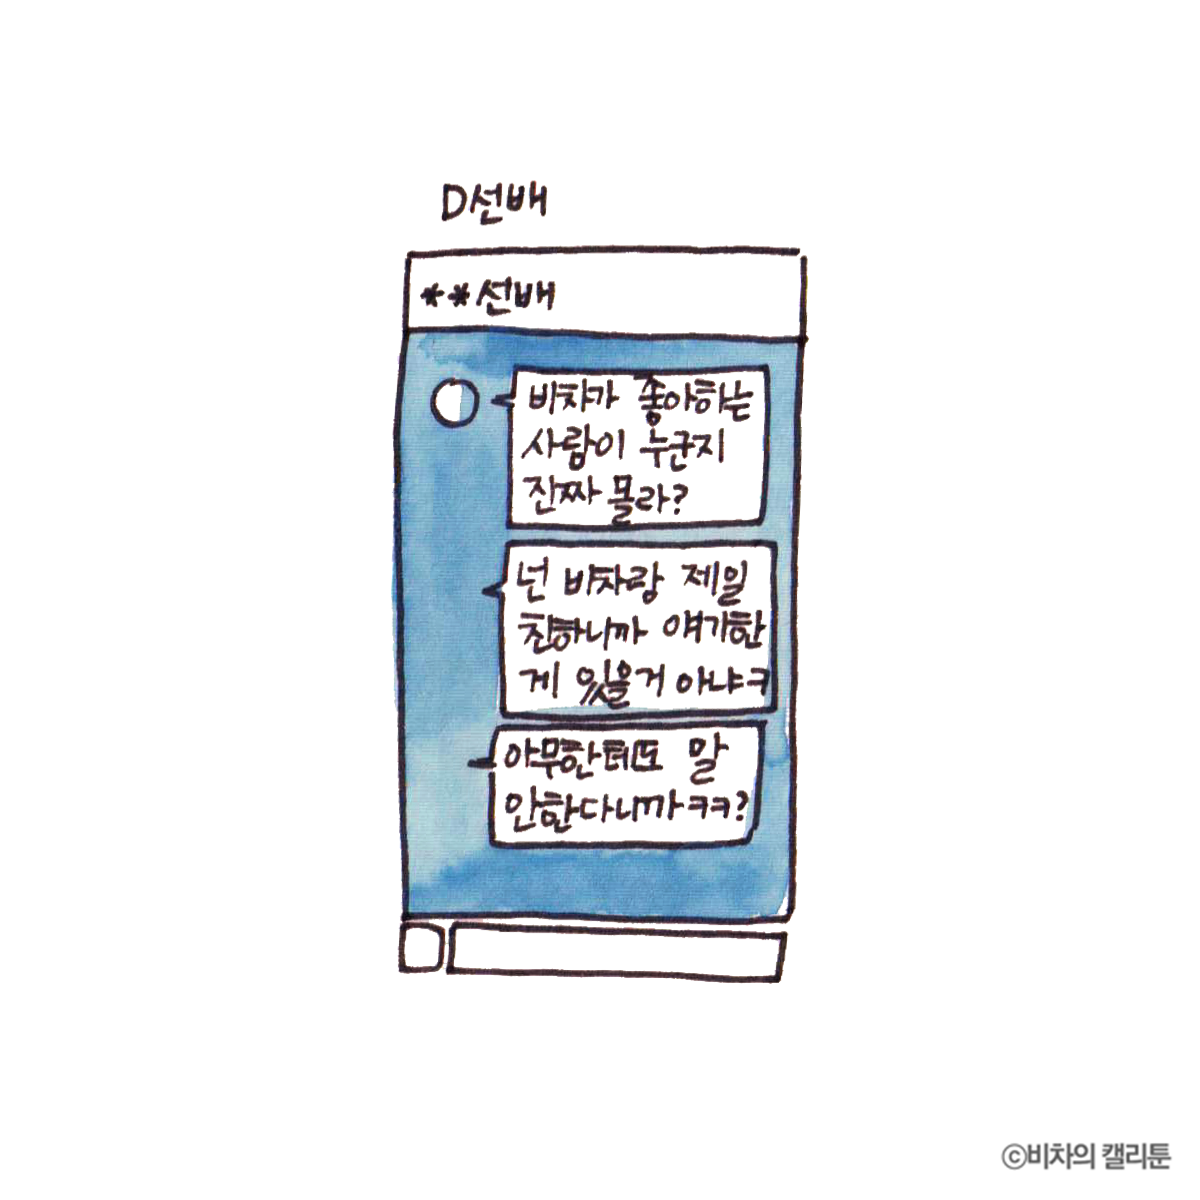 D선배
**선배
비차가 좋아하는
사람이 누군지
진짜 몰라?
넌 비차랑 제일
친하니까 얘기한
게 있을거 아냐ㅋ
아무한테도 말
안한다니까ㅋㅋ?
©비차의 캘리툰